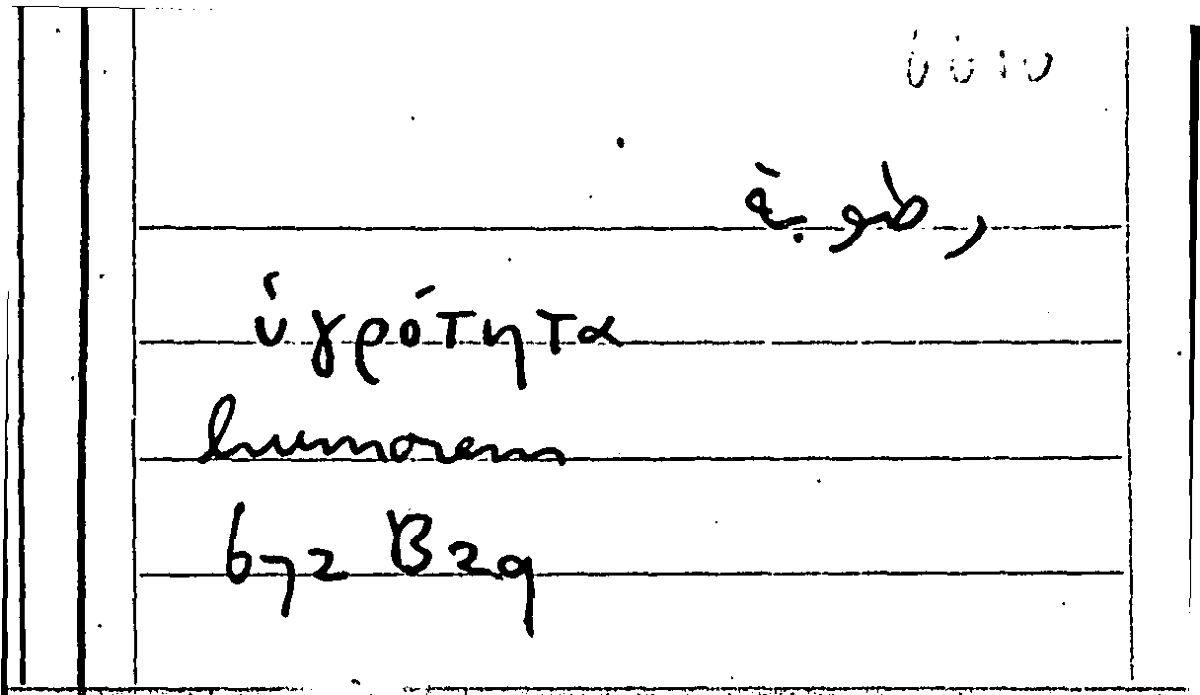 رطوبة
ὑγρότητα
humorem
672 B 29